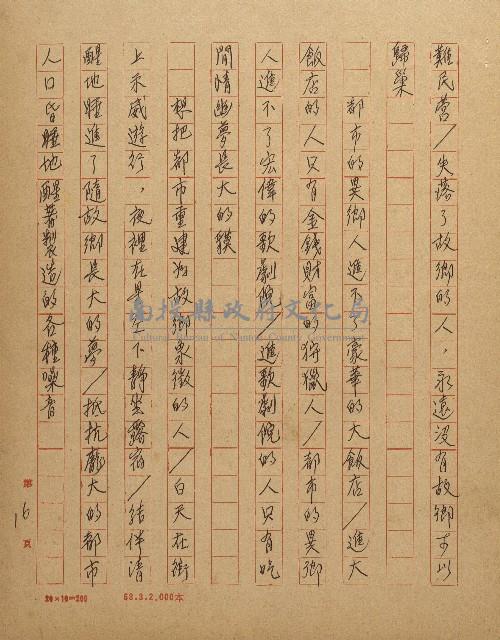 難民营／失落了故鄉的人，永遠没有故鄉可以
歸巢
都市的異鄉人進不了豪華的大飯店／進大
飯店的人只有金錢財富的狩獵人／都市的異鄉
人進不了宏偉的歌劇院／進歌劇院的人只有吃
閒情幽夢長大的貘
想把都市重建為故鄉象徵的人／白天在街
上示威遊行，夜裡在星空下靜坐露宿／結伴清
醒地睡進了隨故鄉長大的夢／抵抗龐大的都市
人口昏睡地醒著製造的各種噪音
南投縣政府文化局
Cultural Bureau of Nantou County Government
第16頁
20×10=200
68.3.2,000本